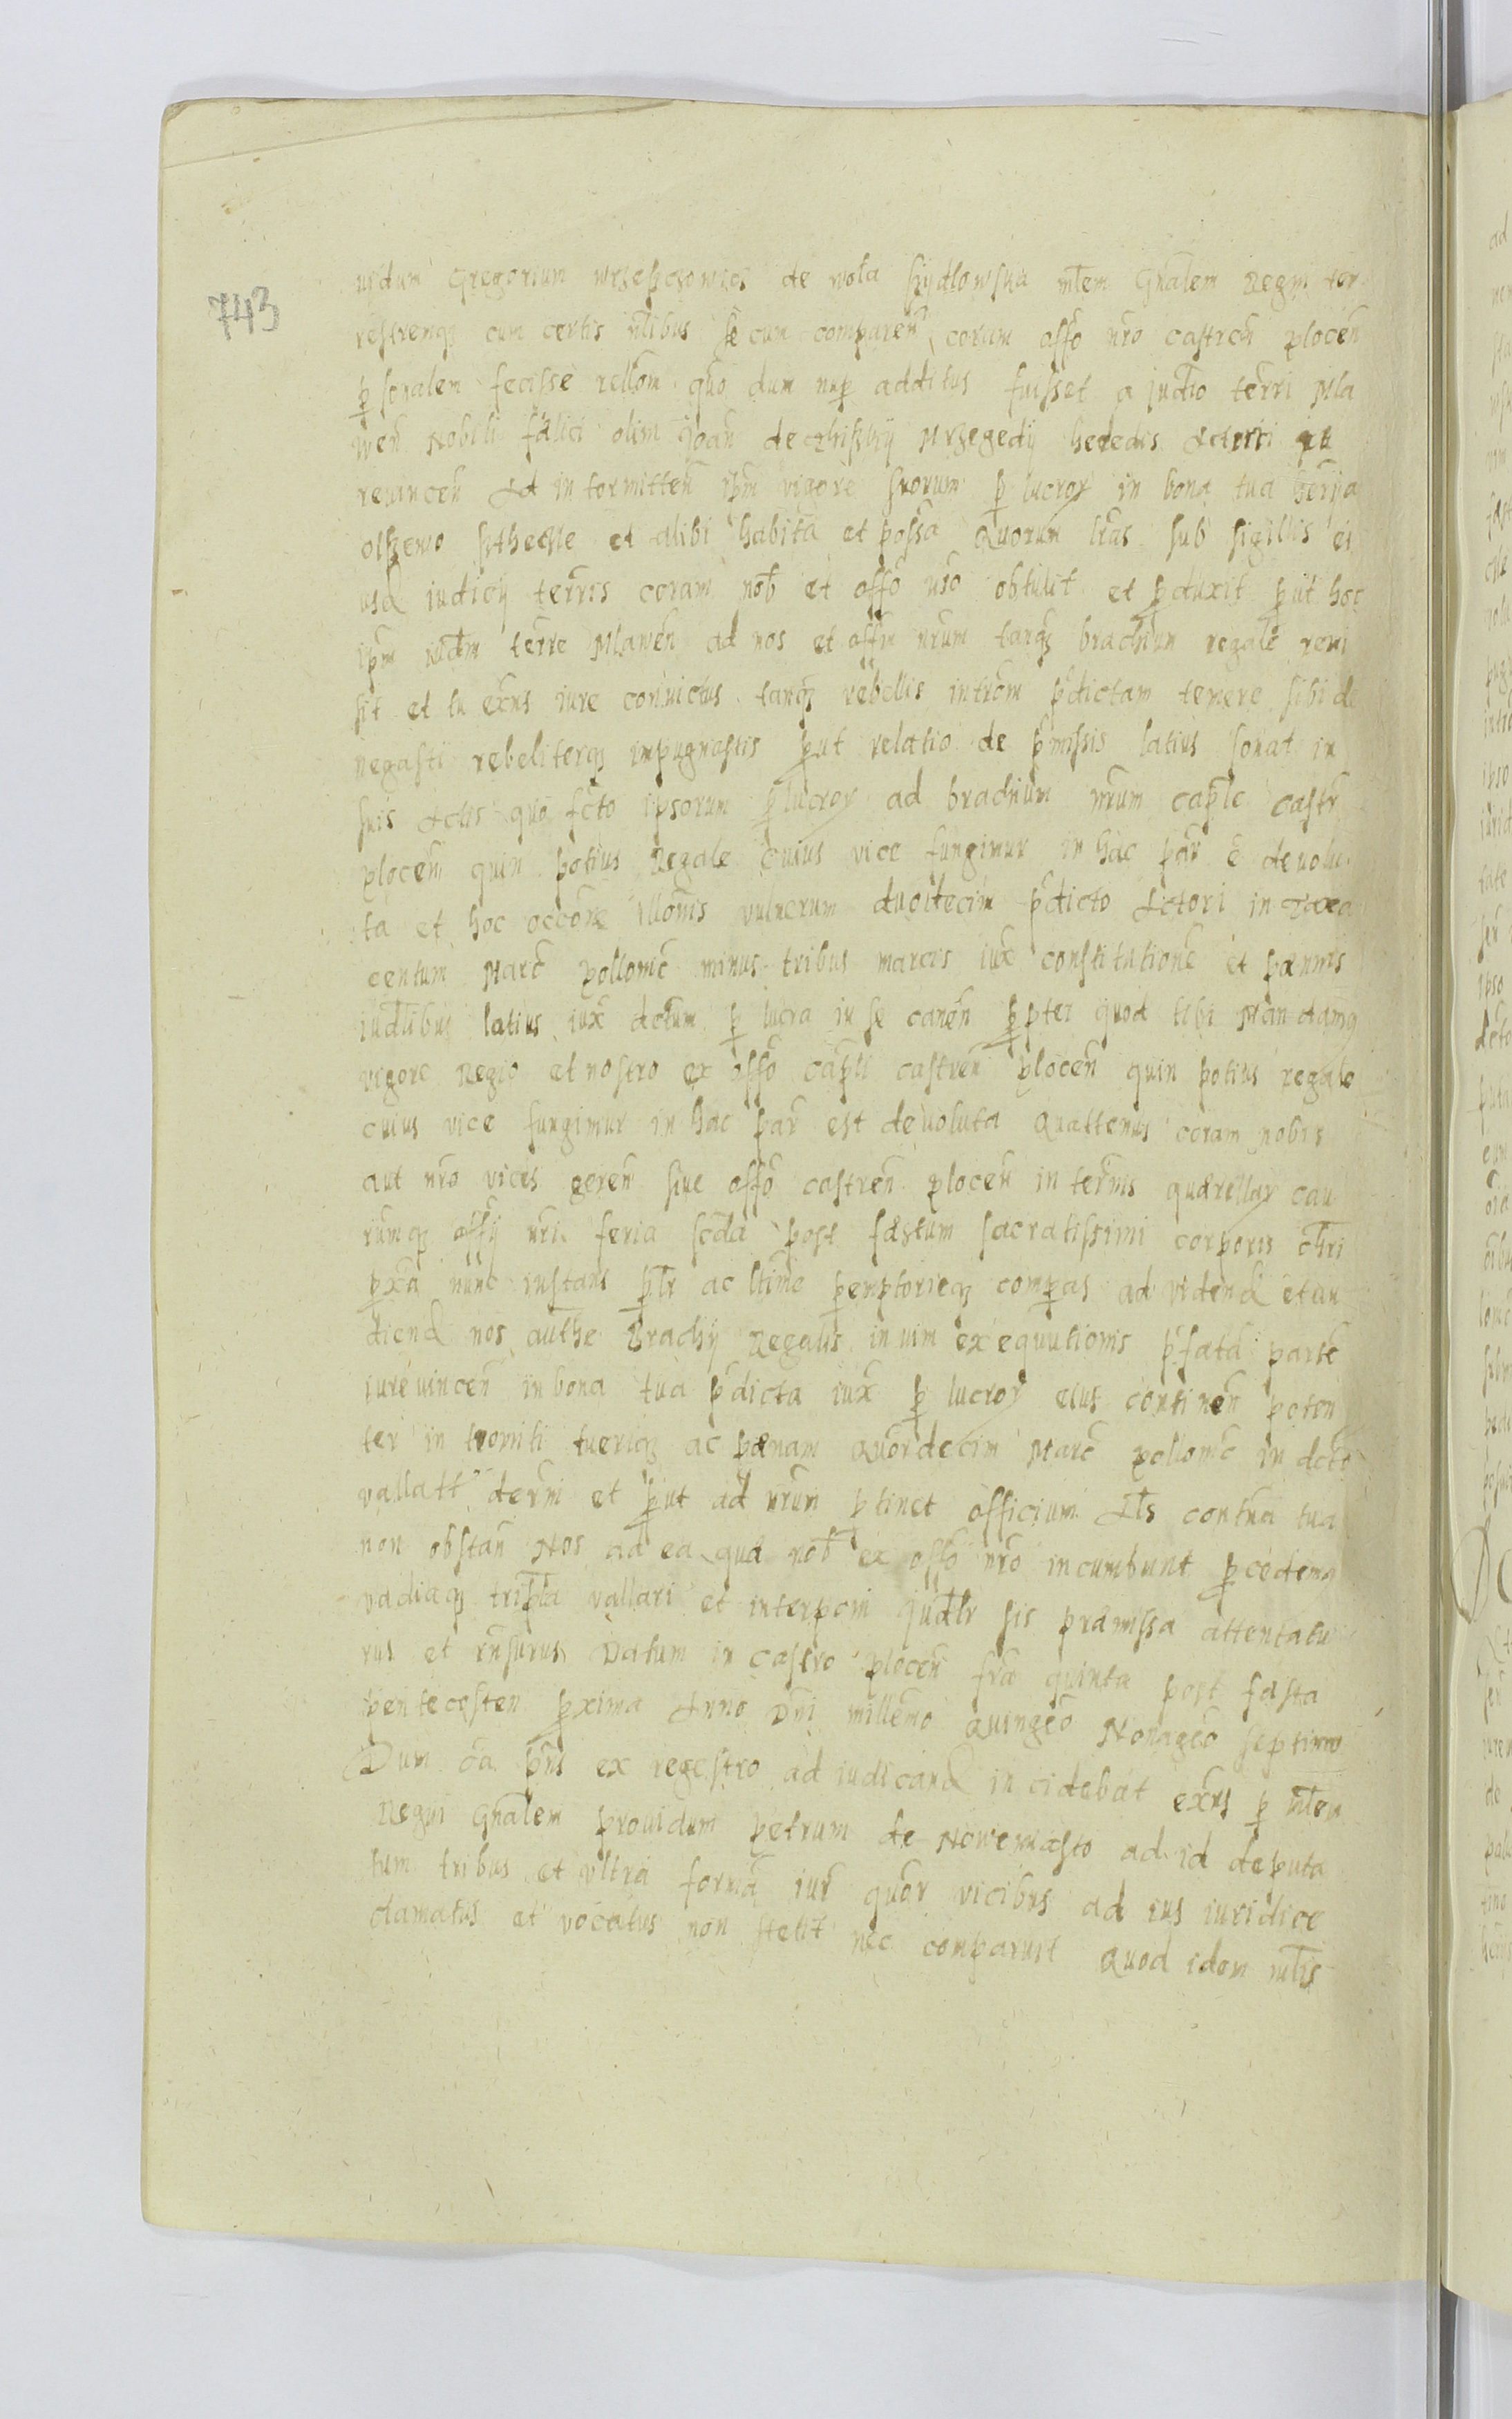 743
uidum Gregorium de wola sydlowska mtem Gnalem Regni ter
restrenq cum certis nlibus secum comparen coram offo nro castren plocen
psonalem fecisse rellom quo dum nup additus fuisset a judio terri Mla
wen Nobili fælici olim Joan de heredis Actori
reuincen Ad intormitten ipm vigore suorum p lucror in bona tua
olszewo et alibi habita et possa Quorum lras sub sigillis ei
usd iudicij terris coram nob et offo nro obtulit et pduxit put hoc
ipm iudm terre Mlawen ad nos et offm nrum tanq brachium regale remi
sit et tu exns iure conuictus tanq rebellis introm pdictam temere sibi de
negasti rebeliterq impugnastis put relatio de pmissis latius sonat in
suis Actis quo fcto ipsorum p lucror ad brachium nrum caple castr
plocen quin potius Regale cuius vice fungimur in hac par e deuolu
ta et hoc occone illonis vulnerum duodecim pdicto Actori in
centum Marc pollonic minus tribus marcis iux constitutione et pænnis
iudlibus latius iux dctum p lucra in se canen ppter quod tibi Mandamq
vigore Regio et nostro ex offo capli castren plocen quin potius regale
cuius vice fungimur in hac par est deuoluta Quattenus coram nobis
aut nro vices geren siue offo castren plocen in termis quærellar cau
rumq offij nri feria scda post fæstum sacratissimi corporis chri
pxa nunc instans plr ac ltime pemptorieq compas ad vidend et au
diend nos authe Brachij Regalis in vim exequutionis pfata parte
iure uincen in bona tua pdicta iux p lucror eius continen poten
ter in tromiti tueriq ac pænam Quordecim Marc pollonic in dcto
vallatt deni et put ad nrum ptinet officium Ats contra tua
non obstan Nos ad ea quæ nob ex offo nro incumbunt pcedemq
vadiaq tripla vallari et interponi judlr sis præmissa attentatu
rus et rnsurus Datum in castro plocen fra quinta post fæsta
pentecosten pxima Anno Dni millemo Quingeo Nonageo septimo
Dum ca pns ex regestro ad iudicand incidebat exns p mtem
Regni Gnalem prouidum petrum de Nowemiasto ad id deputa
tum tribus et vltra forma iur quor vicibus ad ius iuridice
clamatus et vocatus non stetit nec comparuit Quod idem mtis